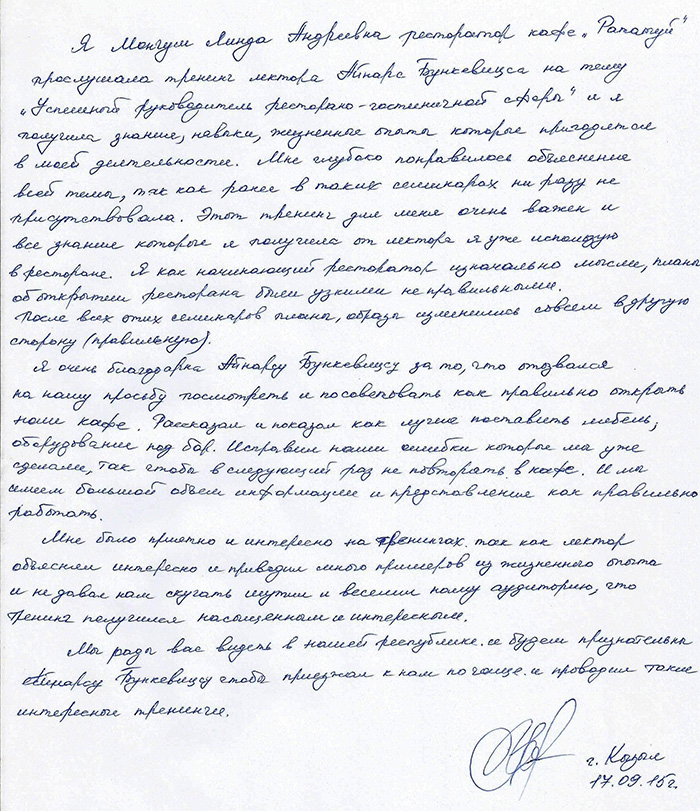 Я Монгуш Линда Андреевна ресторатор кафе „Рататуй"
прослушала тренинг лектора Айнарс Бункевицса на тему
„Успешный руководитель ресторано-гостиничной сферы" и я
получила знание, навыки, жизненные опыты которые пригодятся
в моей деятельности. Мне глубоко понравилось объяснение
всей темы, так как ранее в таких семинарах ни разу не
присутствовала. Этот тренинг для меня очень важен и
все знание которые я получила от лектора я уже использую
в ресторане. Я как начинающий ресторатор изначально мысли, планы
об открытии ресторана были узкими не правильными.
После всех этих семинаров планы, образы изменились совсем в другую
сторону (правильную).
Я очень благодарна Айнарсу Бункевицсу за то, что отозвался
на нашу просьбу посмотреть и посоветовать как правильно открыть
наше кафе. Рассказал и показал как лучше поставить мебель,
оборудование под бар. Исправил наши ошибки которые мы уже
сделали, так чтобы в следующий раз не повторять в кафе. И мы
имеем большой объем информации и представления как правильно
работать.
Мне было приятно и интересно на тренингах. так как лектор
объяснял интересно и приводил много примеров из жизненного опыта
и не давал нам скучать шутил и веселил нашу аудиторию, что
тренинг получился насыщенным и интересным.
Мы рады вас видеть в нашей республике. и будем признательны
Айнарсу Бункевицсу чтобы приезжал к нам по чаще. и проводил такие
интересные тренинги.
г. Кызыл
17.09.15г.